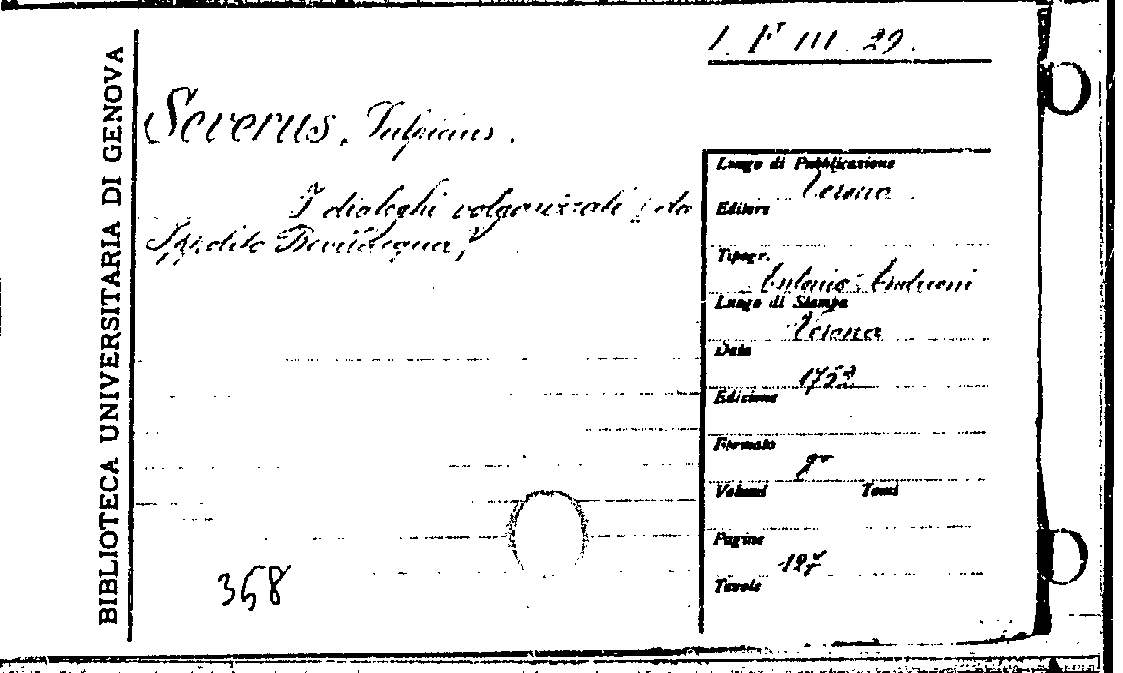 BIBLIOTECA UNIVERSITARIA DI GENOVA
1 F III 29.
Severus, Sulpicius.
I dialoghi volgarizzati / da
Ippolito Bevilacqua /
Luogo di Pubblicazione
Verona
Editore
Tipogr.
Antonio Andreoni
Luogo di Stampa
Verona
Data
Edizione
Formato
8°
Volumi Tomi
Pagine
127
Tavole
358